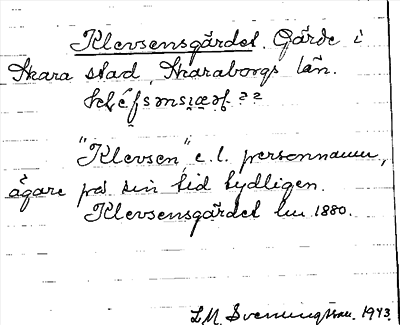 Klevsensgärdet. Gärde i
Skara stad, Skaraborgs län.
"Klevsen", e. l. personnamn,
ägare på sin tid tydligen.
Klevsensgärdet lm 1880.
L.M. Svenungsson. 1943.